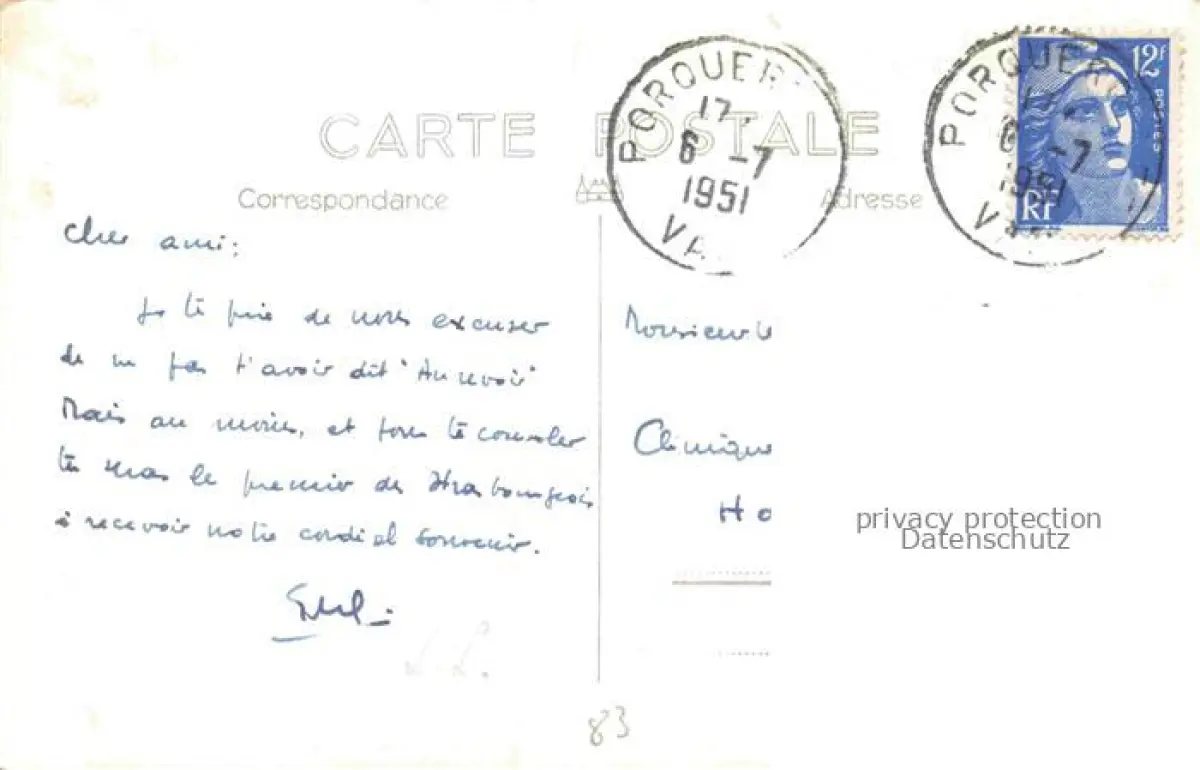 CARTE POSTALE
Correspondance
Adresse
PORQUER
17
6 -7
1951
VA
PORQUER
6 -7
1951
VA
12F
POSTES
RF
Cher ami;
Je te prie de nous excuser
de ne pas t'avoir dit "Au revoir"
Mais au moins, et pour te consoler
tu seras le premier des Strasbourgeois
à recevoir notre cordial souvenir.
Monsieur le
Clinique
Ho
privacy protection
Datenschutz
83